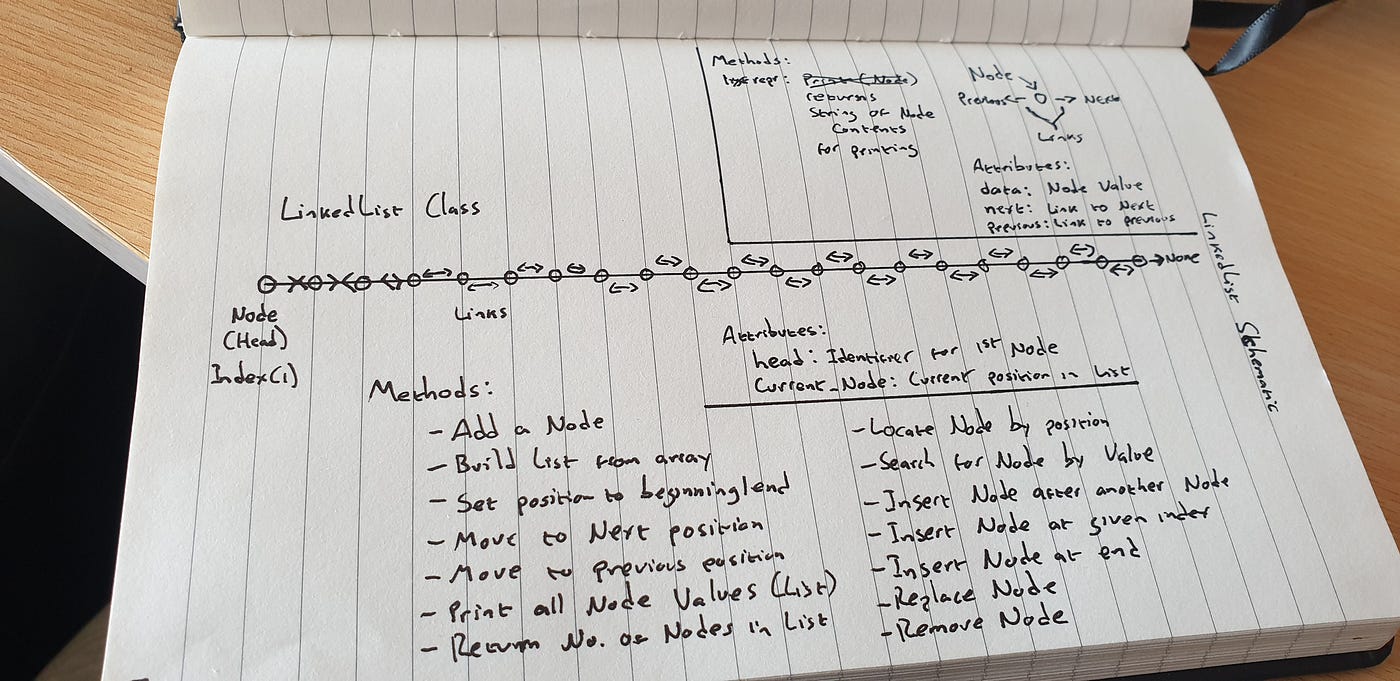 Methods:
repr: Print(Node)
returns
String of Node
Contents
for printing
Node
Previous
Next
Links
Attributes:
data: Node Value
next: Link to Next
previous: Link to previous
LinkedList Schematic
LinkedList Class
None
Node
(Head)
Index(1)
Links
Attributes:
head: Identifier for 1st Node
Current_Node: Current position in List
Methods:
- Add a Node
- Build List from array
- Set position to beginning/end
- Move to Next position
- Move to previous position
- Print all Node Values (List)
- Return No. of Nodes in List
- Locate Node by position
- Search for Node by Value
- Insert Node after another Node
- Insert Node at given index
- Insert Node at end
- Replace Node
- Remove Node